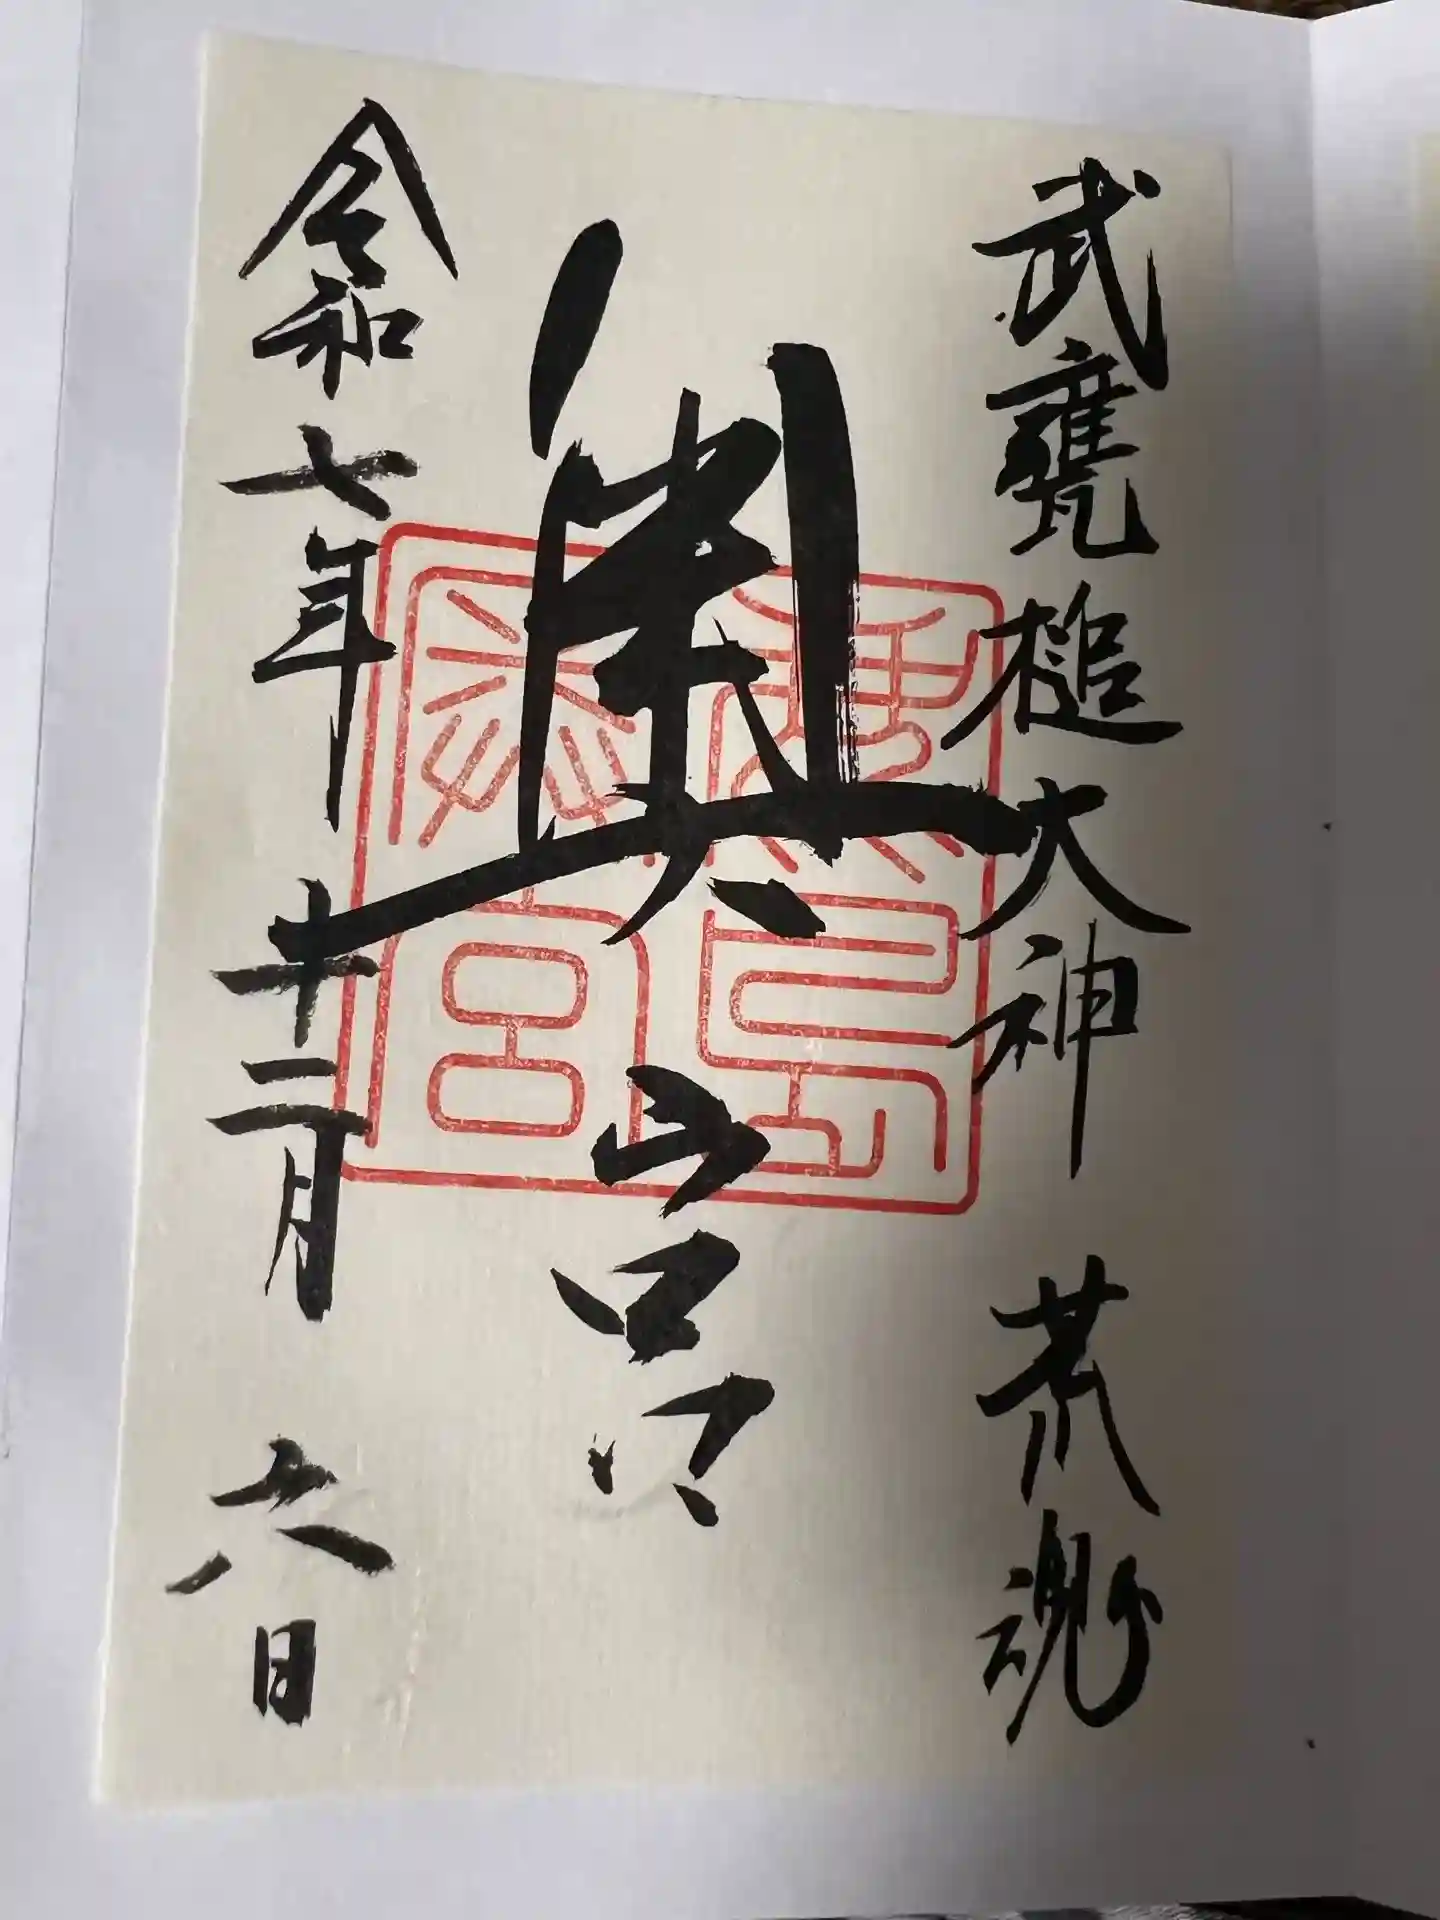 武甕槌大神 荒魂
奥宮
鹿島
奥宮
令和七年十二月六日